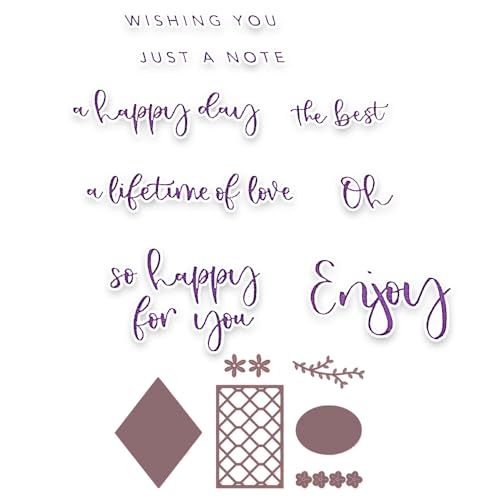 WISHING YOU
JUST A NOTE
a happy day
the best
a lifetime of love
Oh
so happy
for you
Enjoy